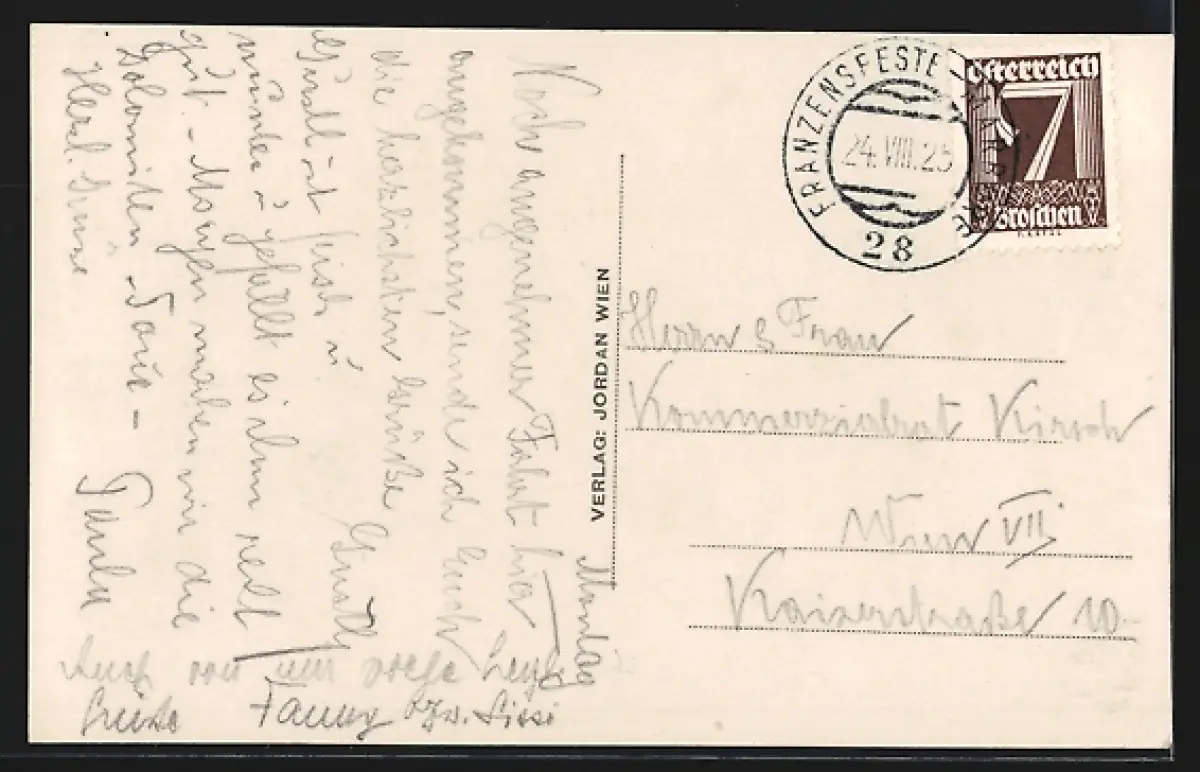 Montag
Nach angenehmer Fahrt hier
angekommen, sende ich Euch
die herzlichsten Grüße
Gustl
Gustl ist frisch u.
munter u. gefällt es ihm recht
gut. – Morgen machen wir die
Dolomiten-Tour –
Herzl. Grüße
Auch von
Grüße Fanny bzw. Sissi
VERLAG: JORDAN WIEN
FRANZENSFESTE
24.VIII.25
28
Österreich
7
Groschen
Herrn & Frau
Kommerzialrat Kirsch
Wien VII.
Kaiserstraße 10.